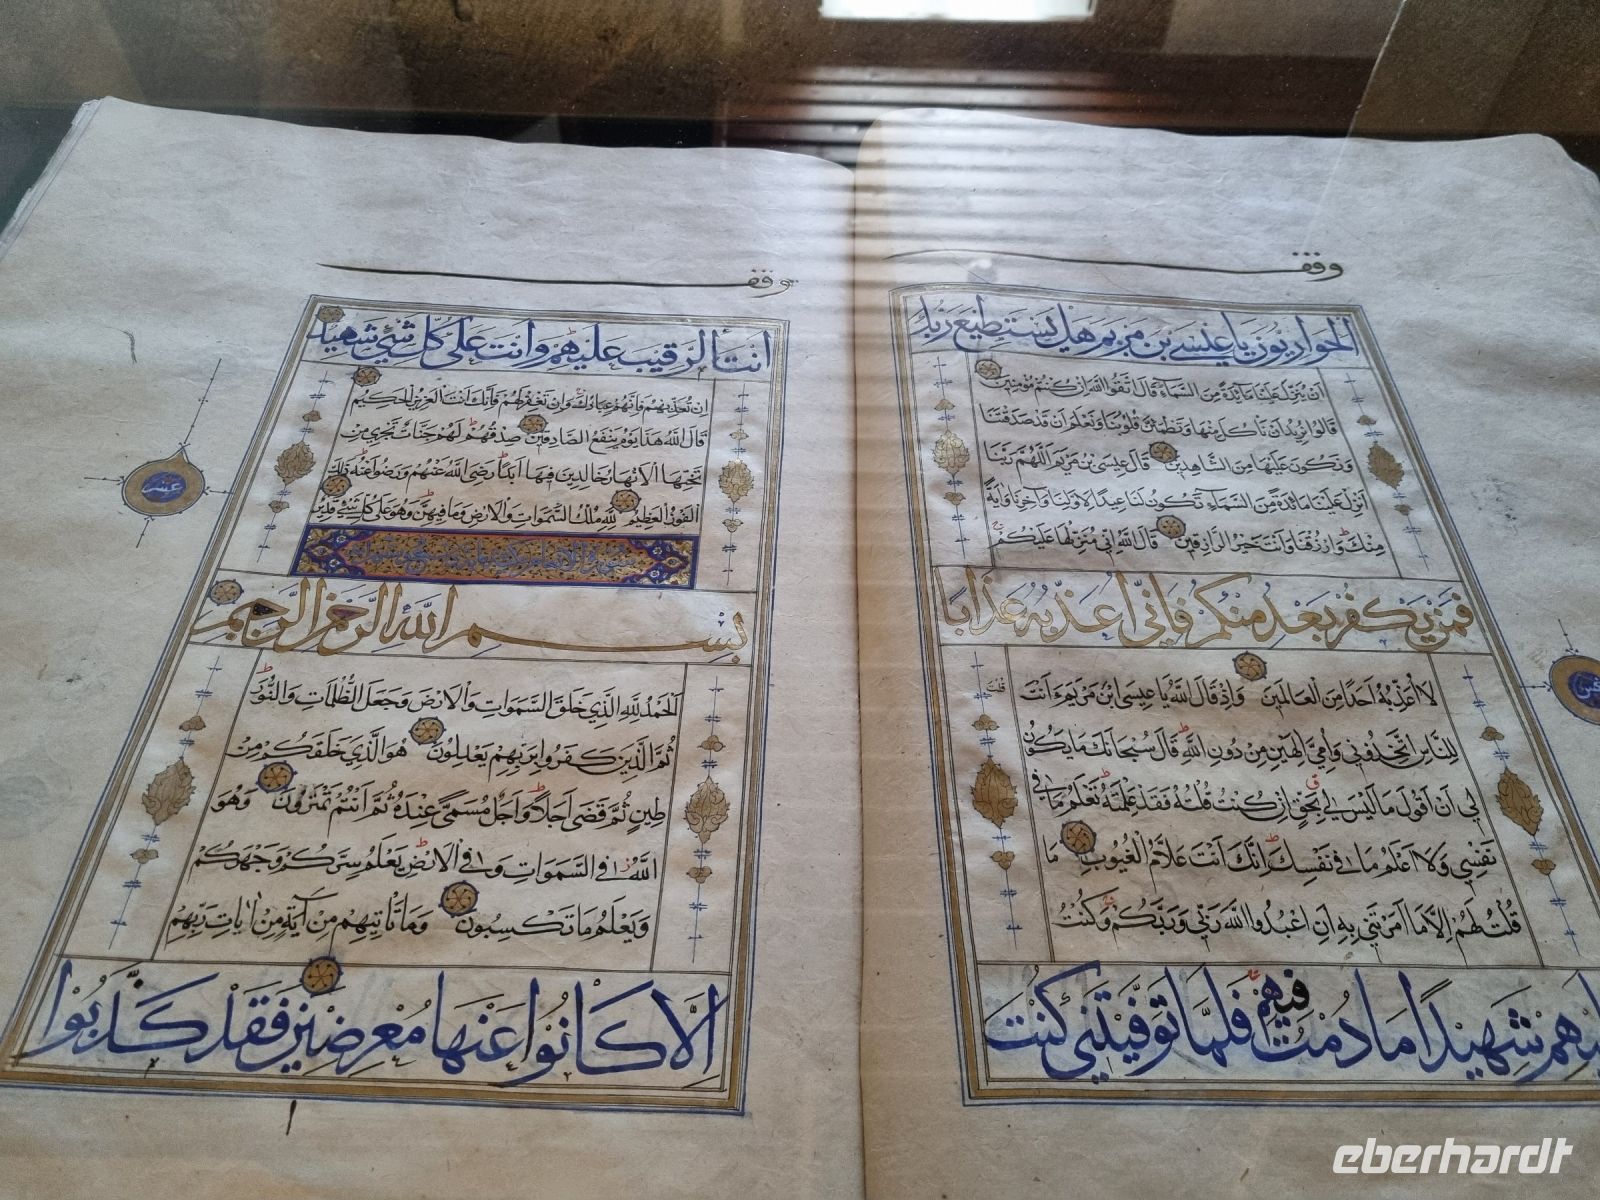 وقف
الحواريون يا عيسى بن مريم هل يستطيع ربك
ان ينزل علينا مائدة من السماء قال اتقوا الله ان كنتم مؤمنين
قالوا نريد ان ناكل منها وتطمئن قلوبنا ونعلم ان قد صدقتنا
ونكون عليها من الشاهدين قال عيسى بن مريم اللهم ربنا
انزل علينا مائدة من السماء تكون لنا عيدا لاولنا وآخرنا وآية
منك وارزقنا وانت خير الرازقين قال الله اني منزلها عليكم
فمن يكفر بعد منكم فاني اعذبه عذابا
لا اعذبه احدا من العالمين واذ قال الله يا عيسى ابن مريم ءانت
قلت
للناس اتخذوني وامي الهين من دون الله قال سبحانك ما يكون
لي ان اقول ما ليس لي بحق ان كنت قلته فقد علمته تعلم ما في
نفسي ولا اعلم ما في نفسك انك انت علام الغيوب ما
قلت لهم الا ما امرتني به ان اعبدوا الله ربي وربكم وكنت
عليهم شهيدا ما دمت فيهم فلما توفيتني كنت
وقف
انت الرقيب عليهم وانت على كل شيء شهيد
ان تعذبهم فانهم عبادك وان تغفر لهم فانك انت العزيز الحكيم
قال الله هذا يوم ينفع الصادقين صدقهم لهم جنات تجري من
تحتها الانهار خالدين فيها ابدا رضي الله عنهم ورضوا عنه ذلك
الفوز العظيم لله ملك السموات والارض وما فيهن وهو على كل شيء قدير
سورة الانعام
بسم الله الرحمن الرحيم
الحمد لله الذي خلق السموات والارض وجعل الظلمات والنور
ثم الذين كفروا بربهم يعدلون هو الذي خلقكم من
طين ثم قضى اجلا واجل مسمى عنده ثم انتم تمترون وهو
الله في السموات وفي الارض يعلم سركم وجهركم
ويعلم ما تكسبون وما تاتيهم من آية من آيات ربهم
الا كانوا عنها معرضين فقد كذبوا
عشر
eberhardt